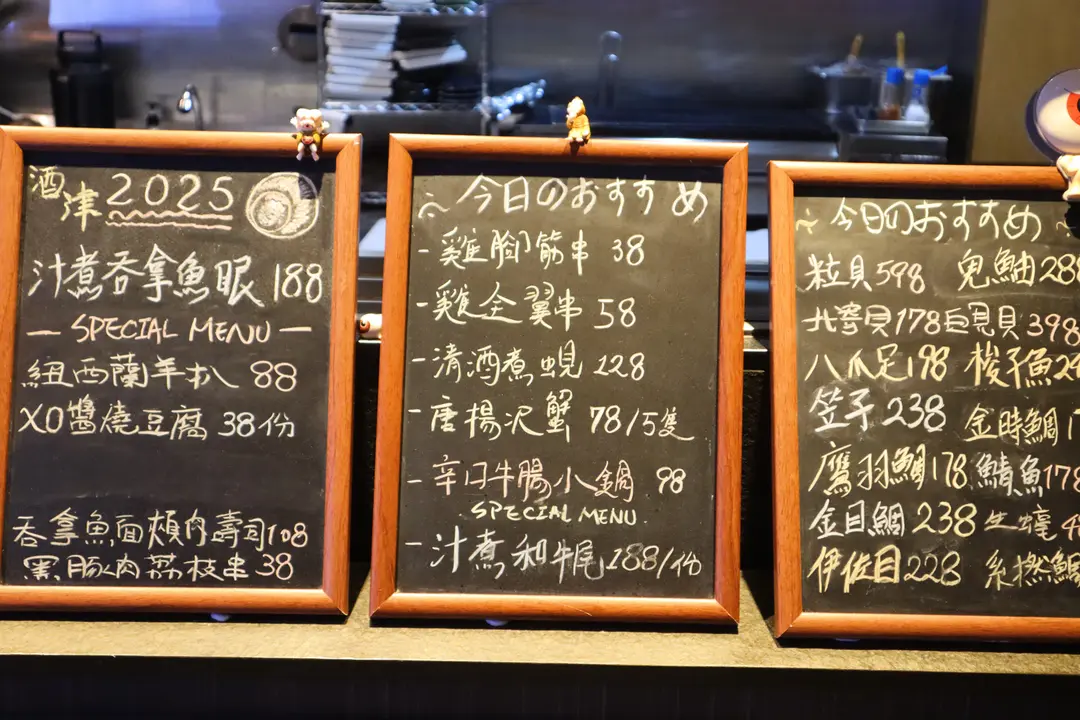 酒津 2025
汁煮吞拿魚眼 188
— SPECIAL MENU —
紐西蘭羊扒 88
XO醬燒豆腐 38份
吞拿魚面頰肉壽司108
黑豚肉荔枝串 38
~ 今日のおすすめ
- 雞腳筋串 38
- 雞全翼串 58
- 清酒煮蜆 128
- 唐揚沢蟹 78/5隻
- 辛口牛腸小鍋 98
SPECIAL MENU
- 汁煮和牛尾 188/份
~ 今日のおすすめ ~
粒貝 598 鬼鮋 288
北寄貝 178 自見貝 398
八爪足 198 梭子魚
笠子 238 金時鯛
鷹羽鯛 178 鯖魚 178
金目鯛 238 生蠔
伊佐目 228 糸撚鯛